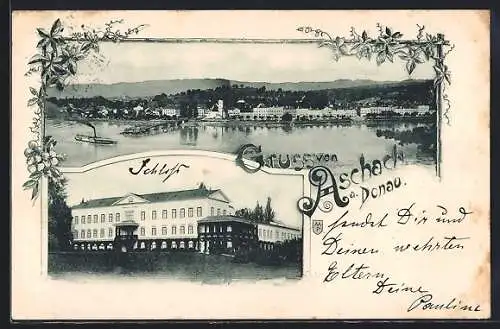 Schloß
Gruss von
Aschach
a. Donau.
sendet Dir und
Deinen wehrten
Eltern
Deine
Pauline